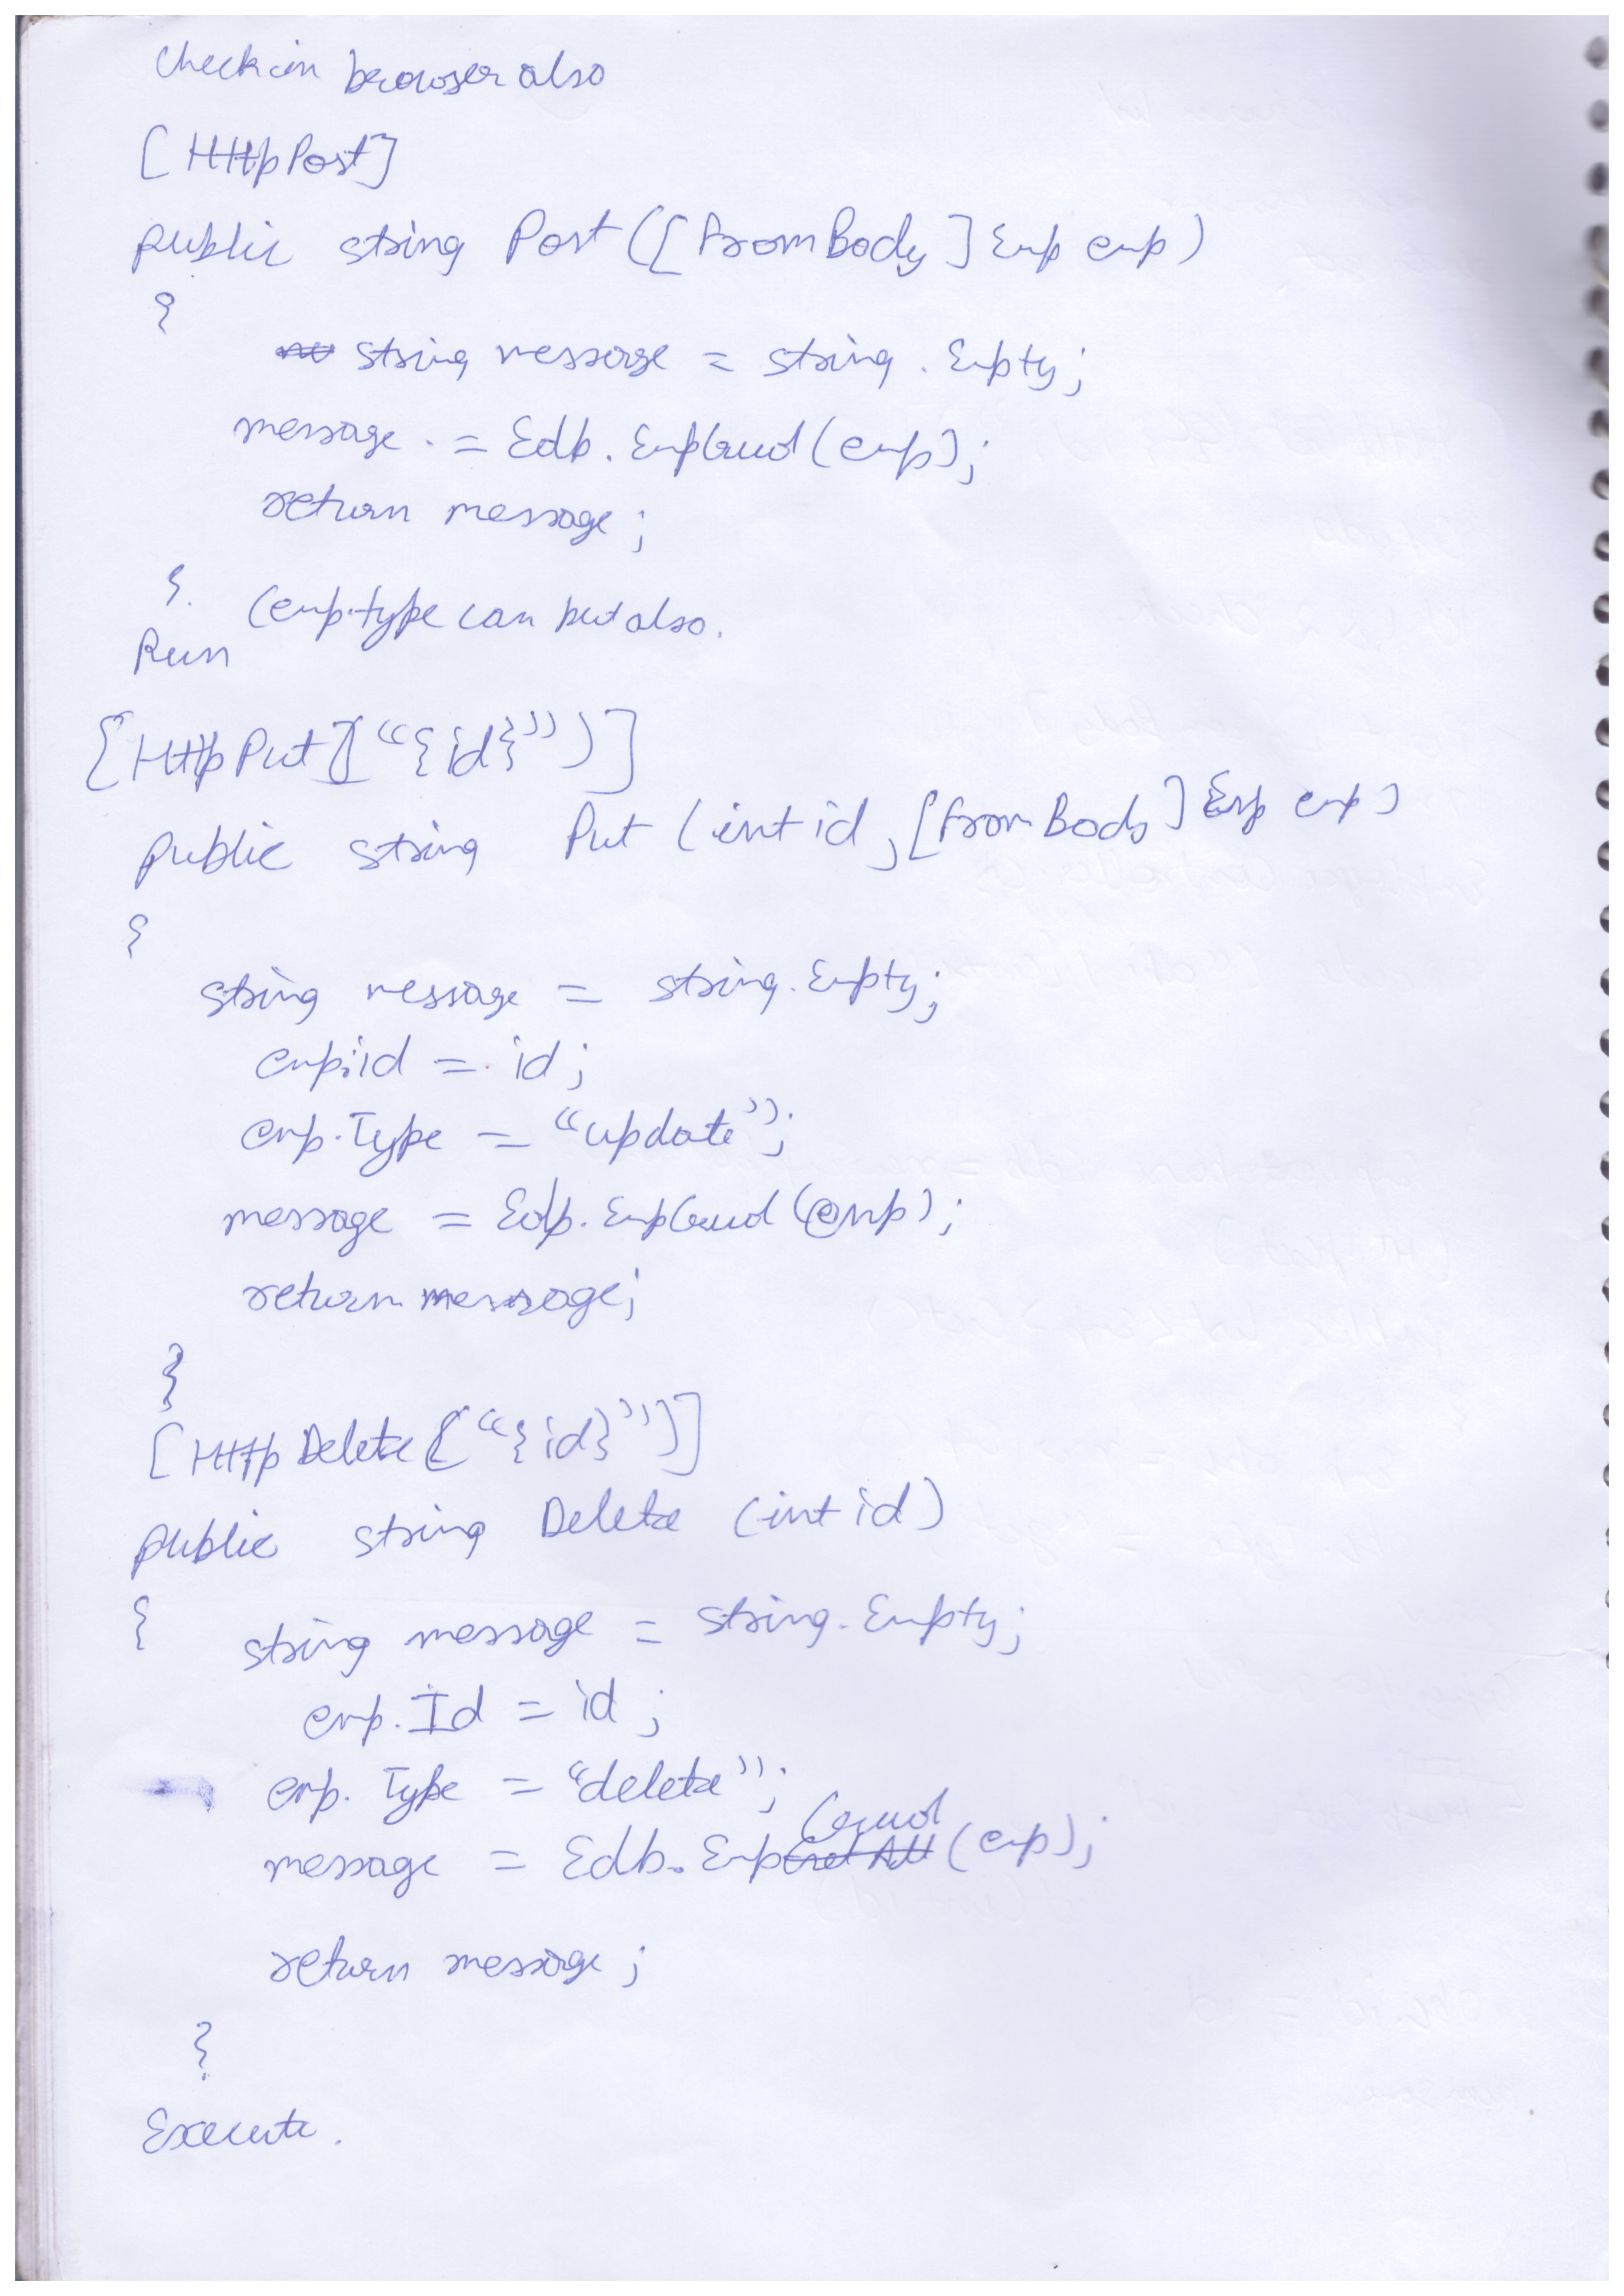 Check in browser also
[HttpPost]
public string Post([FromBody] Emp emp)
{
string message = string.Empty;
message . = Edb.EmpCrud(emp);
return message;
}. (emp.type can put also.
Run
[HttpPut("{id}")]
public string Put (int id, [FromBody] Emp emp)
{
string message = string.Empty;
emp.id = id;
emp.Type = "update";
message = Edb.EmpCrud(emp);
return message;
}
[HttpDelete("{id}")]
public string Delete (int id)
{ string message = string.Empty;
emp.Id = id;
emp.Type = "delete";
message = Edb.EmpCrud(emp);
return message;
}
Execute.